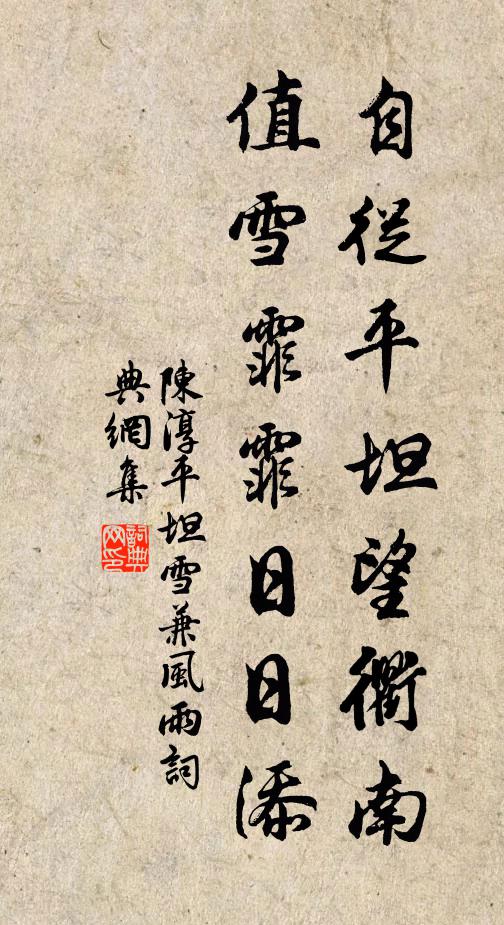 自從平坦望衢南
值雪霏霏日日添
陳淳平坦雪兼風雨詞
典網集
詞典網印